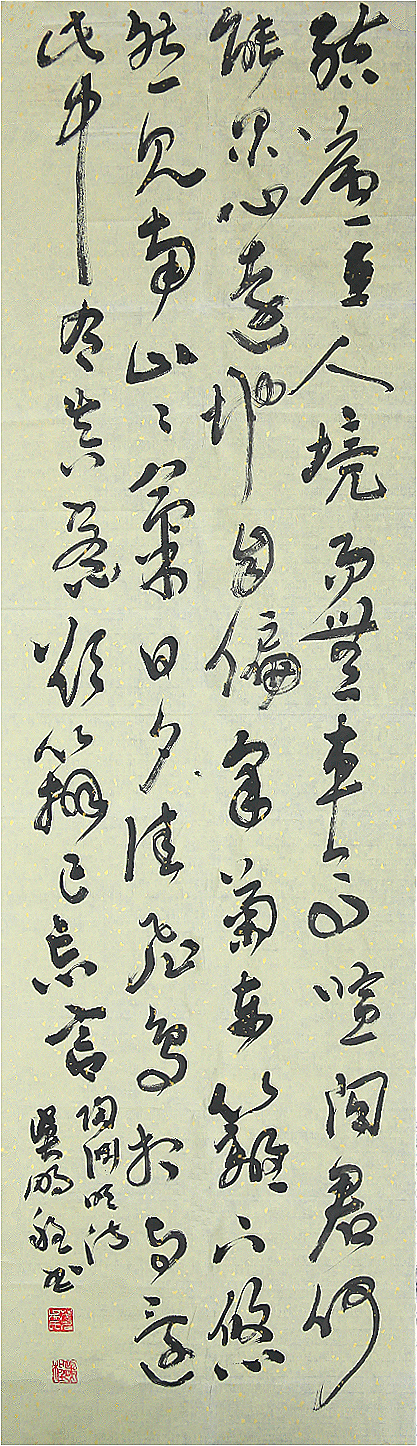 結廬在人境而無車馬喧問君何
能尔心遠地自偏采菊東籬下悠
然見南山々氣日夕佳飛鳥相與還
此中有真意欲辨已忘言
陶淵明詩
吳鵬程書